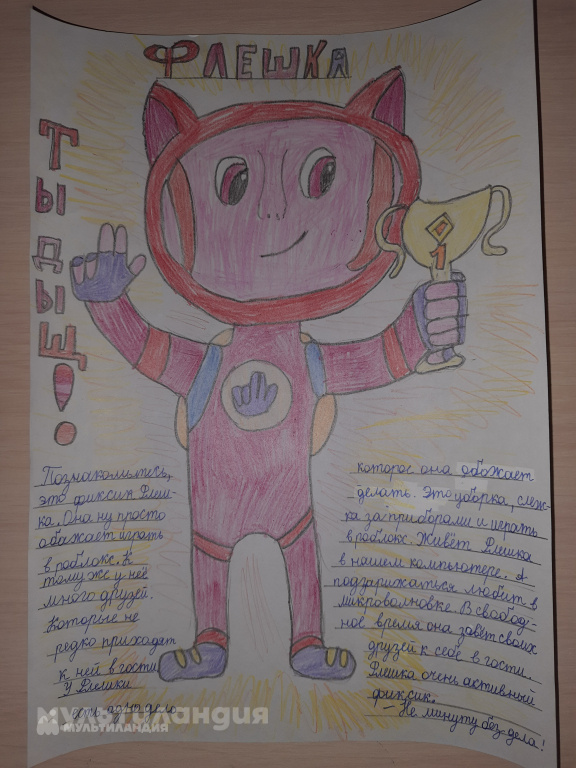 ФЛЕШКА
ТЫДЫЩ!
Познакомьтесь,
это фиксик Флеш-
ка. Она ну просто
обажает играть
в роблокс. К
тому же у неё
много друзей.
Которые не
редко приходят
к ней в гости.
У Флешки
есть одно дело
которое она обожает
делать. Это уборка, слеж-
ка за приборами и играть
в роблокс. Живёт Флешка
в нашем компьютере. А
подзарижаться любит в
микроволновке. В свобод-
ное время она зовёт своих
друзей к себе в гости.
Флешка очень активный
фиксик.
— Не минуту без дела!
1
мультиландия
МУЛЬТИЛАНДИЯ